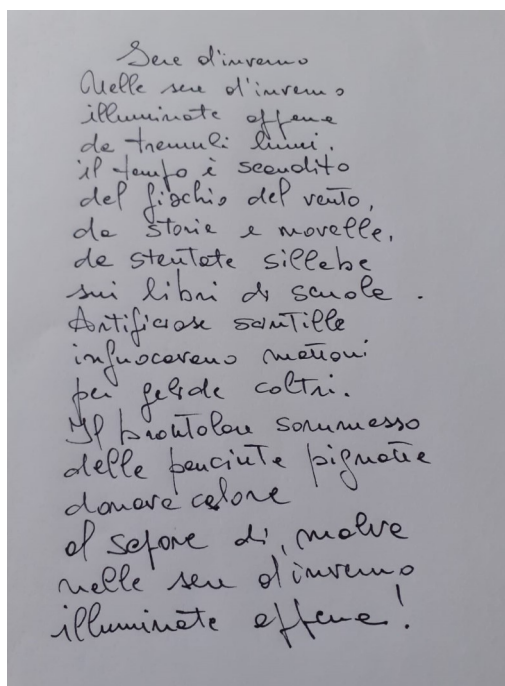 Sere d'inverno
Nelle sere d'inverno
illuminate appena
da tremuli lumi,
il tempo è scandito
dal fischio del vento,
da storie e novelle,
da stentate sillabe
sui libri di scuola.
Artificiose scintille
infuocavano mattoni
per gelide coltri.
Il brontolare sommesso
delle panciute pignatte
donava calore
al sapore di malva
nelle sere d'inverno
illuminate appena!